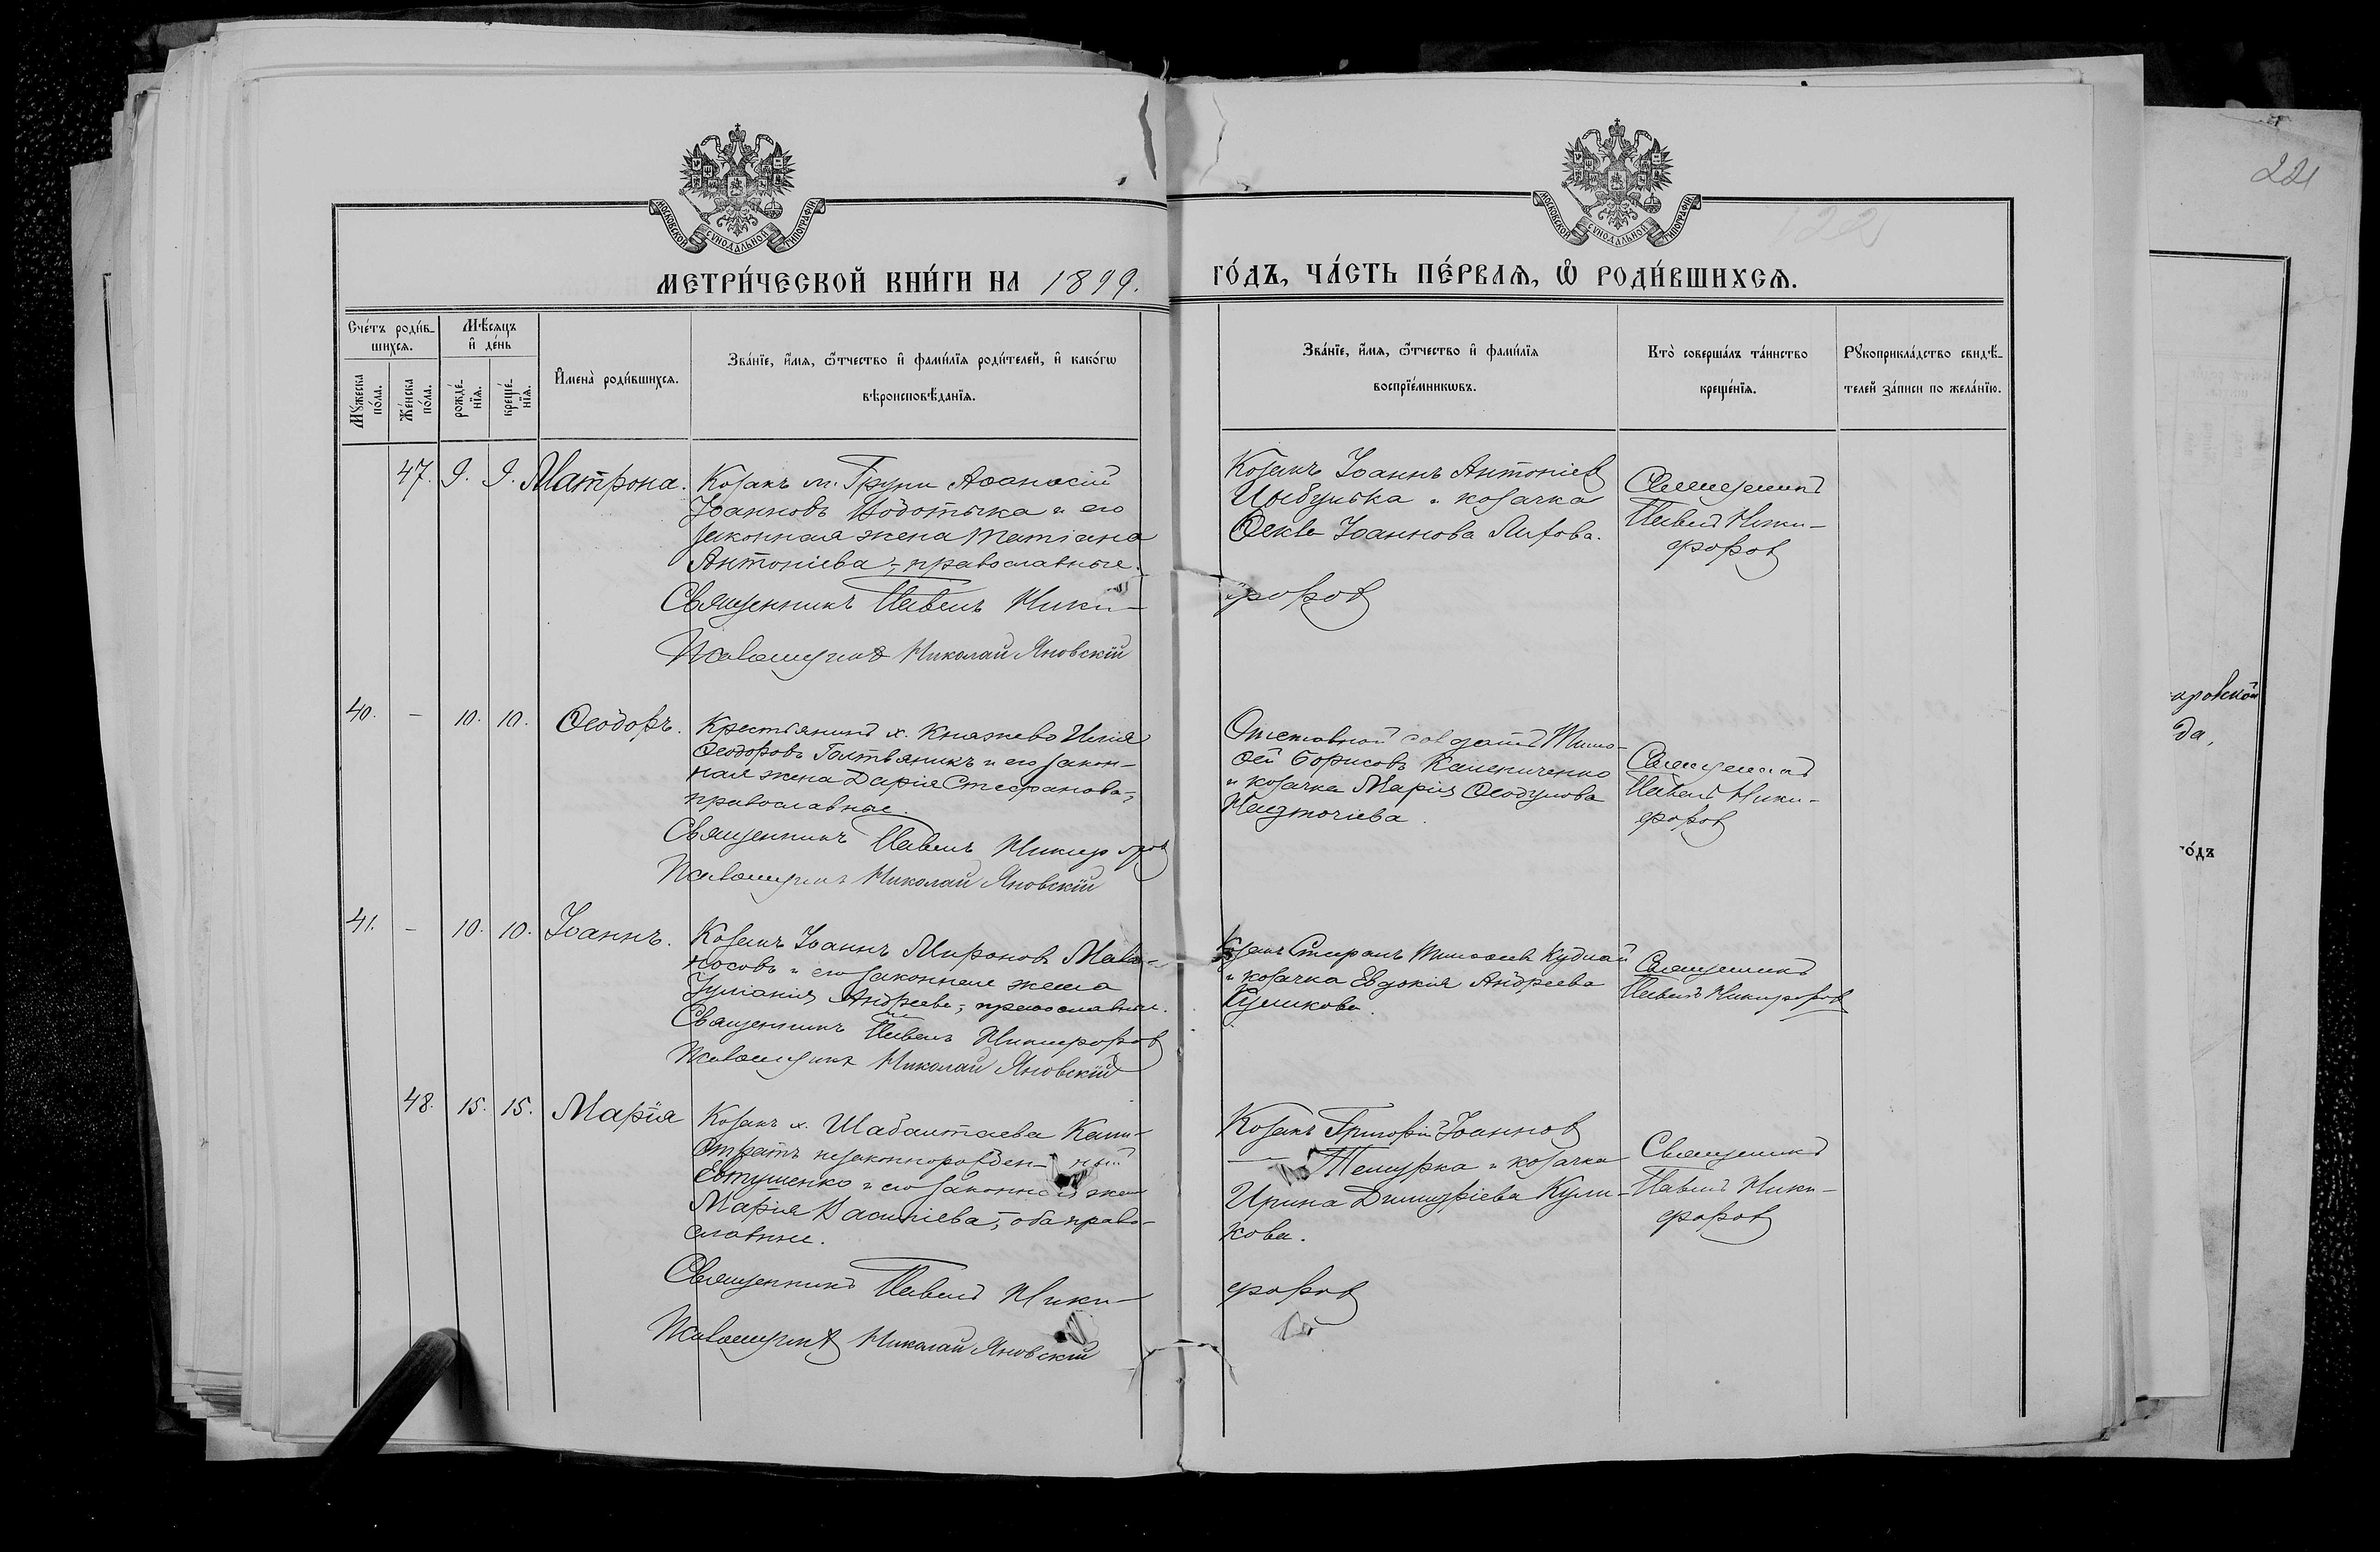 221
МОСКОВСКОЙ СУНОДАЛЬНОЙ ТИПОГРАФІИ
МОСКОВСКОЙ СУНОДАЛЬНОЙ ТИПОГРАФІИ
МЕТРИ́ЧЕСКОЙ КНИ́ГИ НА 1899.
ГО́ДЪ, ЧА́СТЬ ПЕ́РВАЯ, Ѡ҆ РОДИ́ВШИХСЯ.
Сче́тъ роди́в-
шихся.
Мѣ́сяцъ
и҆ де́нь
Мꙋ́жеска
по́ла.
Же́нска
по́ла.
рожде́-
нїя.
креще́-
нїя.
И҆мена̀ роди́вшихся.
Зва́нїе, и҆́мя, ѻ҆́тчество и҆ фами́лїя роди́телей, и҆ како́гѡ
вѣроисповѣ́данїя.
Зва́нїе, и҆́мя, ѻ҆́тчество и҆ фами́лїя
воспрїе́мникѡвъ.
Кто̀ соверша́лъ та́инство
креще́нїя.
Рꙋкоприкла́дство свидѣ́-
телей за́писи по жела́нїю.
47. 9. 9. Матрона.
Козакъ м. Груни Аѳанасій
Іоанновъ Водотыка и его
законная жена Татіана
Антоніева, православные.
Священникъ Павелъ Ники-
форов
Псаломщикъ Николай Яновскій
Козакъ Іоаннъ Антоніев
Цыбулька и козачка
Ѳекла Іоаннова
Священникъ
Павелъ Ники-
форов
40. - 10. 10. Ѳеодоръ.
Крестьянинъ х. Княжево Илія
Ѳеодоровъ Голтвяникъ и его закон-
ная жена Дарія Стефанова,
православные.
Священникъ Павелъ Никифоров
Псаломщикъ Николай Яновскій
Отставной солдатъ Тимо-
ѳей Борисовъ
и козачка Марія
Священникъ
Павелъ Ники-
форов
41. - 10. 10. Іоаннъ.
Козакъ Іоаннъ Миронов Мало-
носовъ и его законная жена
Іуліанія Андреева, православные.
Священникъ Павелъ Никифоров
Псаломщикъ Николай Яновскій
Козакъ Тимоѳеев Кудлай
и козачка Евдокія Андреева
Священникъ
Павелъ Никифоров
48. 15. 15. Марія
Козакъ х. Кали-
стратъ незаконнорожден-ный
Евтушенко и его законная жена
Марія Василіева, оба право-
славные.
Священникъ Павелъ Ники-
форов
Псаломщикъ Николай Яновскій
Козакъ Григорій Іоаннов
и козачка
Ирина Димитріева Кули-
кова.
Священникъ
Павелъ Ники-
форов
да,
го́дъ